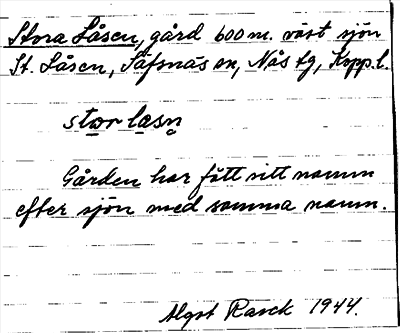 Stora Låsen, gård 600 m. väst sjön
St. Låsen, Säfsnäs sn, Nås tg, Kopp. l.
stor låsn̥
Gården har fått sitt namn
efter sjön med samma namn.
Algot Rasck 1944.